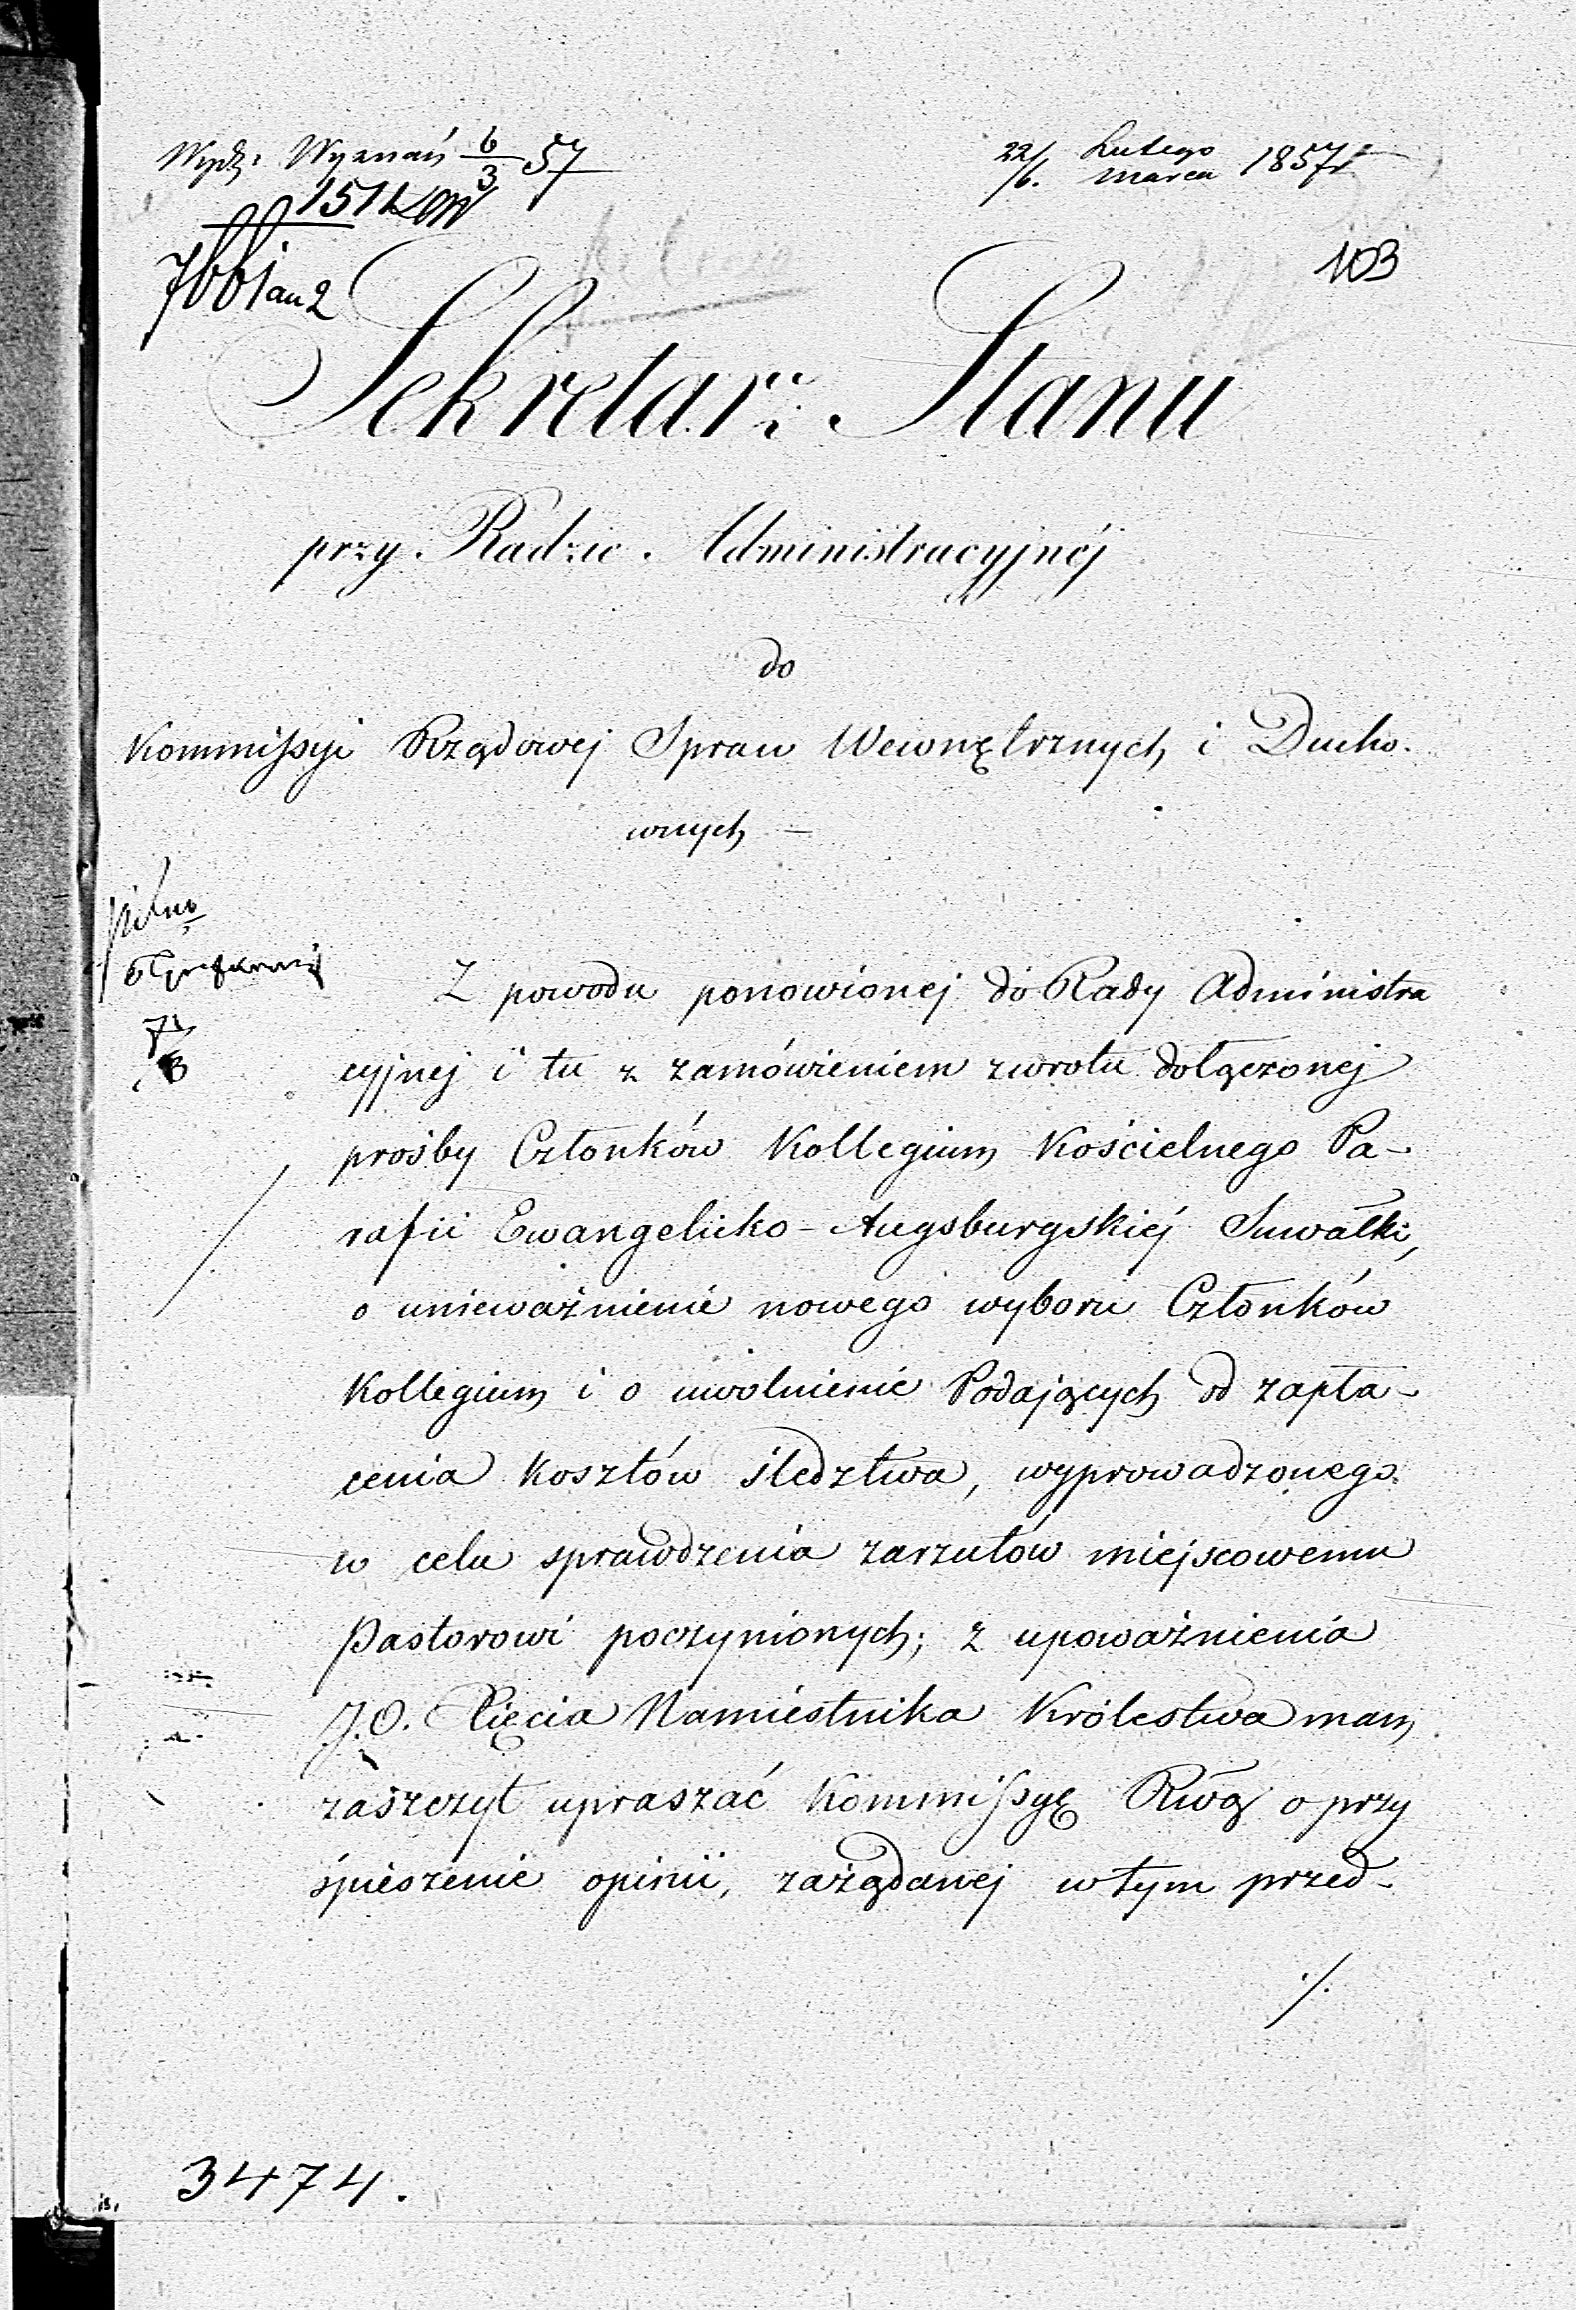 Wydz: Wyznań 6/3 57
22/6. Lutego Marca 1857 r
1511
103
7661 an 2
Sekretarz Stanu
przy Radzie Administracyjnéj
do
Kommissyi Rządowej Spraw Wewnętrznych i Ducho-
wnych —
pilno
Z powodu ponowionej do Rady Administra
cyjnej i tu z zamówieniem zwrotu dołączonej
prośby Członków Kollegium Kościelnego Pa-
rafii Ewangelicko-Augsburgskiéj Suwałki,
o unieważnienie nowego wyboru Członków
Kollegium i o uwolnienie Podających od zapła-
cenia kosztów śledztwa, wyprowadzonego
w celu sprawdzenia zarzutów miejscowemu
Pastorowi poczynionych; z upoważnienia
J.O. Xięcia Namiestnika Królestwa mam
zaszczyt upraszać Kommissyę Rwą o przy
śpieszenie opinii, zażądanej w tym przed-
./.
3474.